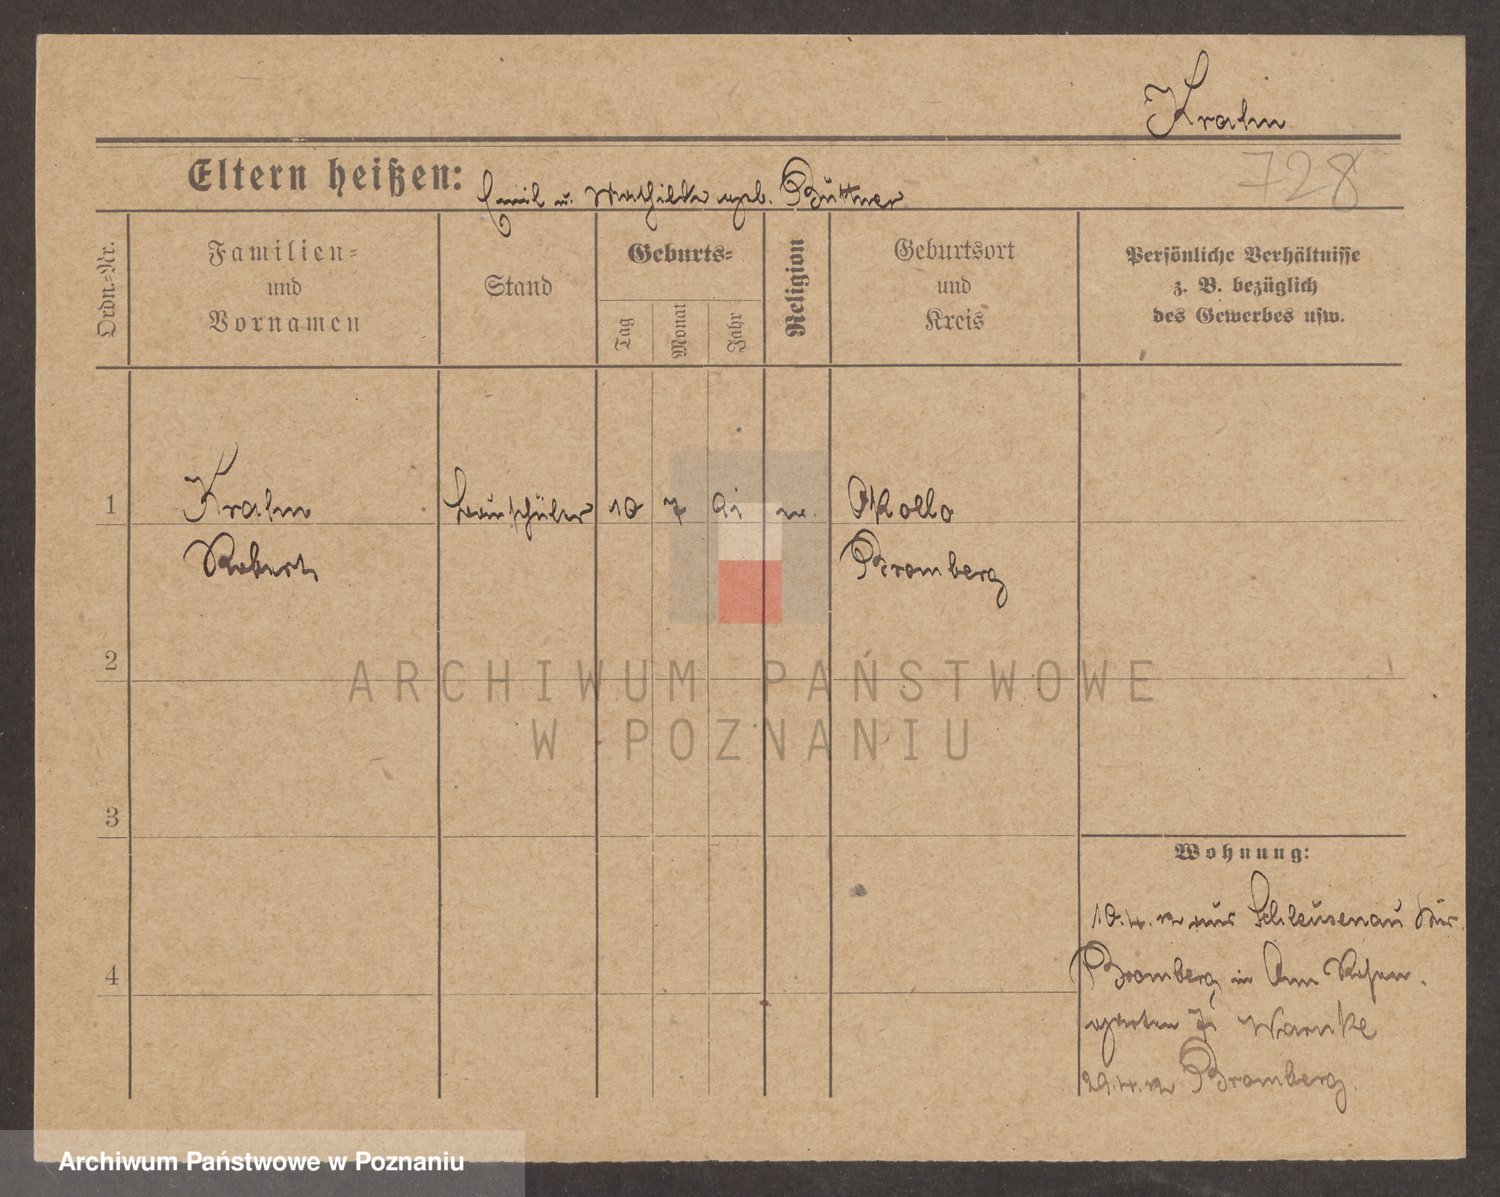 Krahn
728
Eltern heißen: Emil u. Mathilde geb. Büttner
Ordn.=Nr.
Familien=
und
Vornamen
Stand
Geburts=
Tag
Monat
Jahr
Religion
Geburtsort
und
Kreis
Persönliche Verhältnisse
z. B. bezüglich
des Gewerbes usw.
1
Krahn
Robert
10
7
Okollo
Bromberg
2
3
4
Wohnung:
10.4. aus Schleusenau
Bromberg in Am Rosen
garten Warnke
29.4. Bromberg.
ARCHIWUM PAŃSTWOWE
W POZNANIU
Archiwum Państwowe w Poznaniu